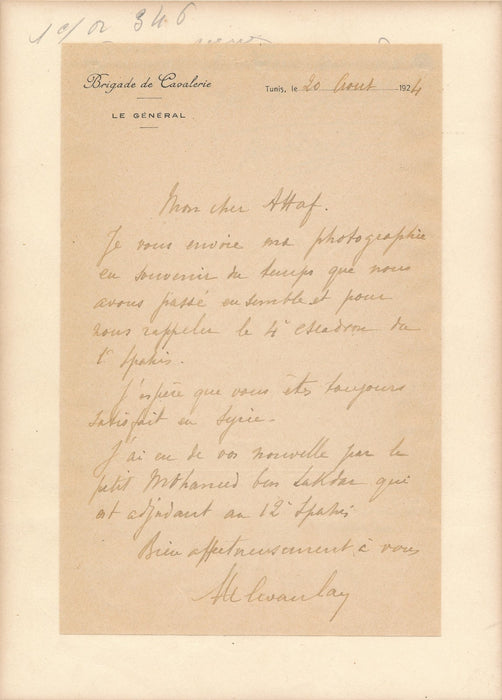 1 c/or 346
Brigade de Cavalerie
Tunis, le 20 Aout 1924
LE GÉNÉRAL
Mon cher Attaf.
Je vous envoie ma photographie
en souvenir du temps que nous
avons passé ensemble et pour
vous rappeler le 4e escadron du
1er Spahis.
J'espère que vous êtes toujours
satisfait en Syrie.
J'ai eu de vos nouvelle par le
petit Mohamed ben Lakdar qui
est adjudant au 12e Spahis
Bien affectueusement à vous